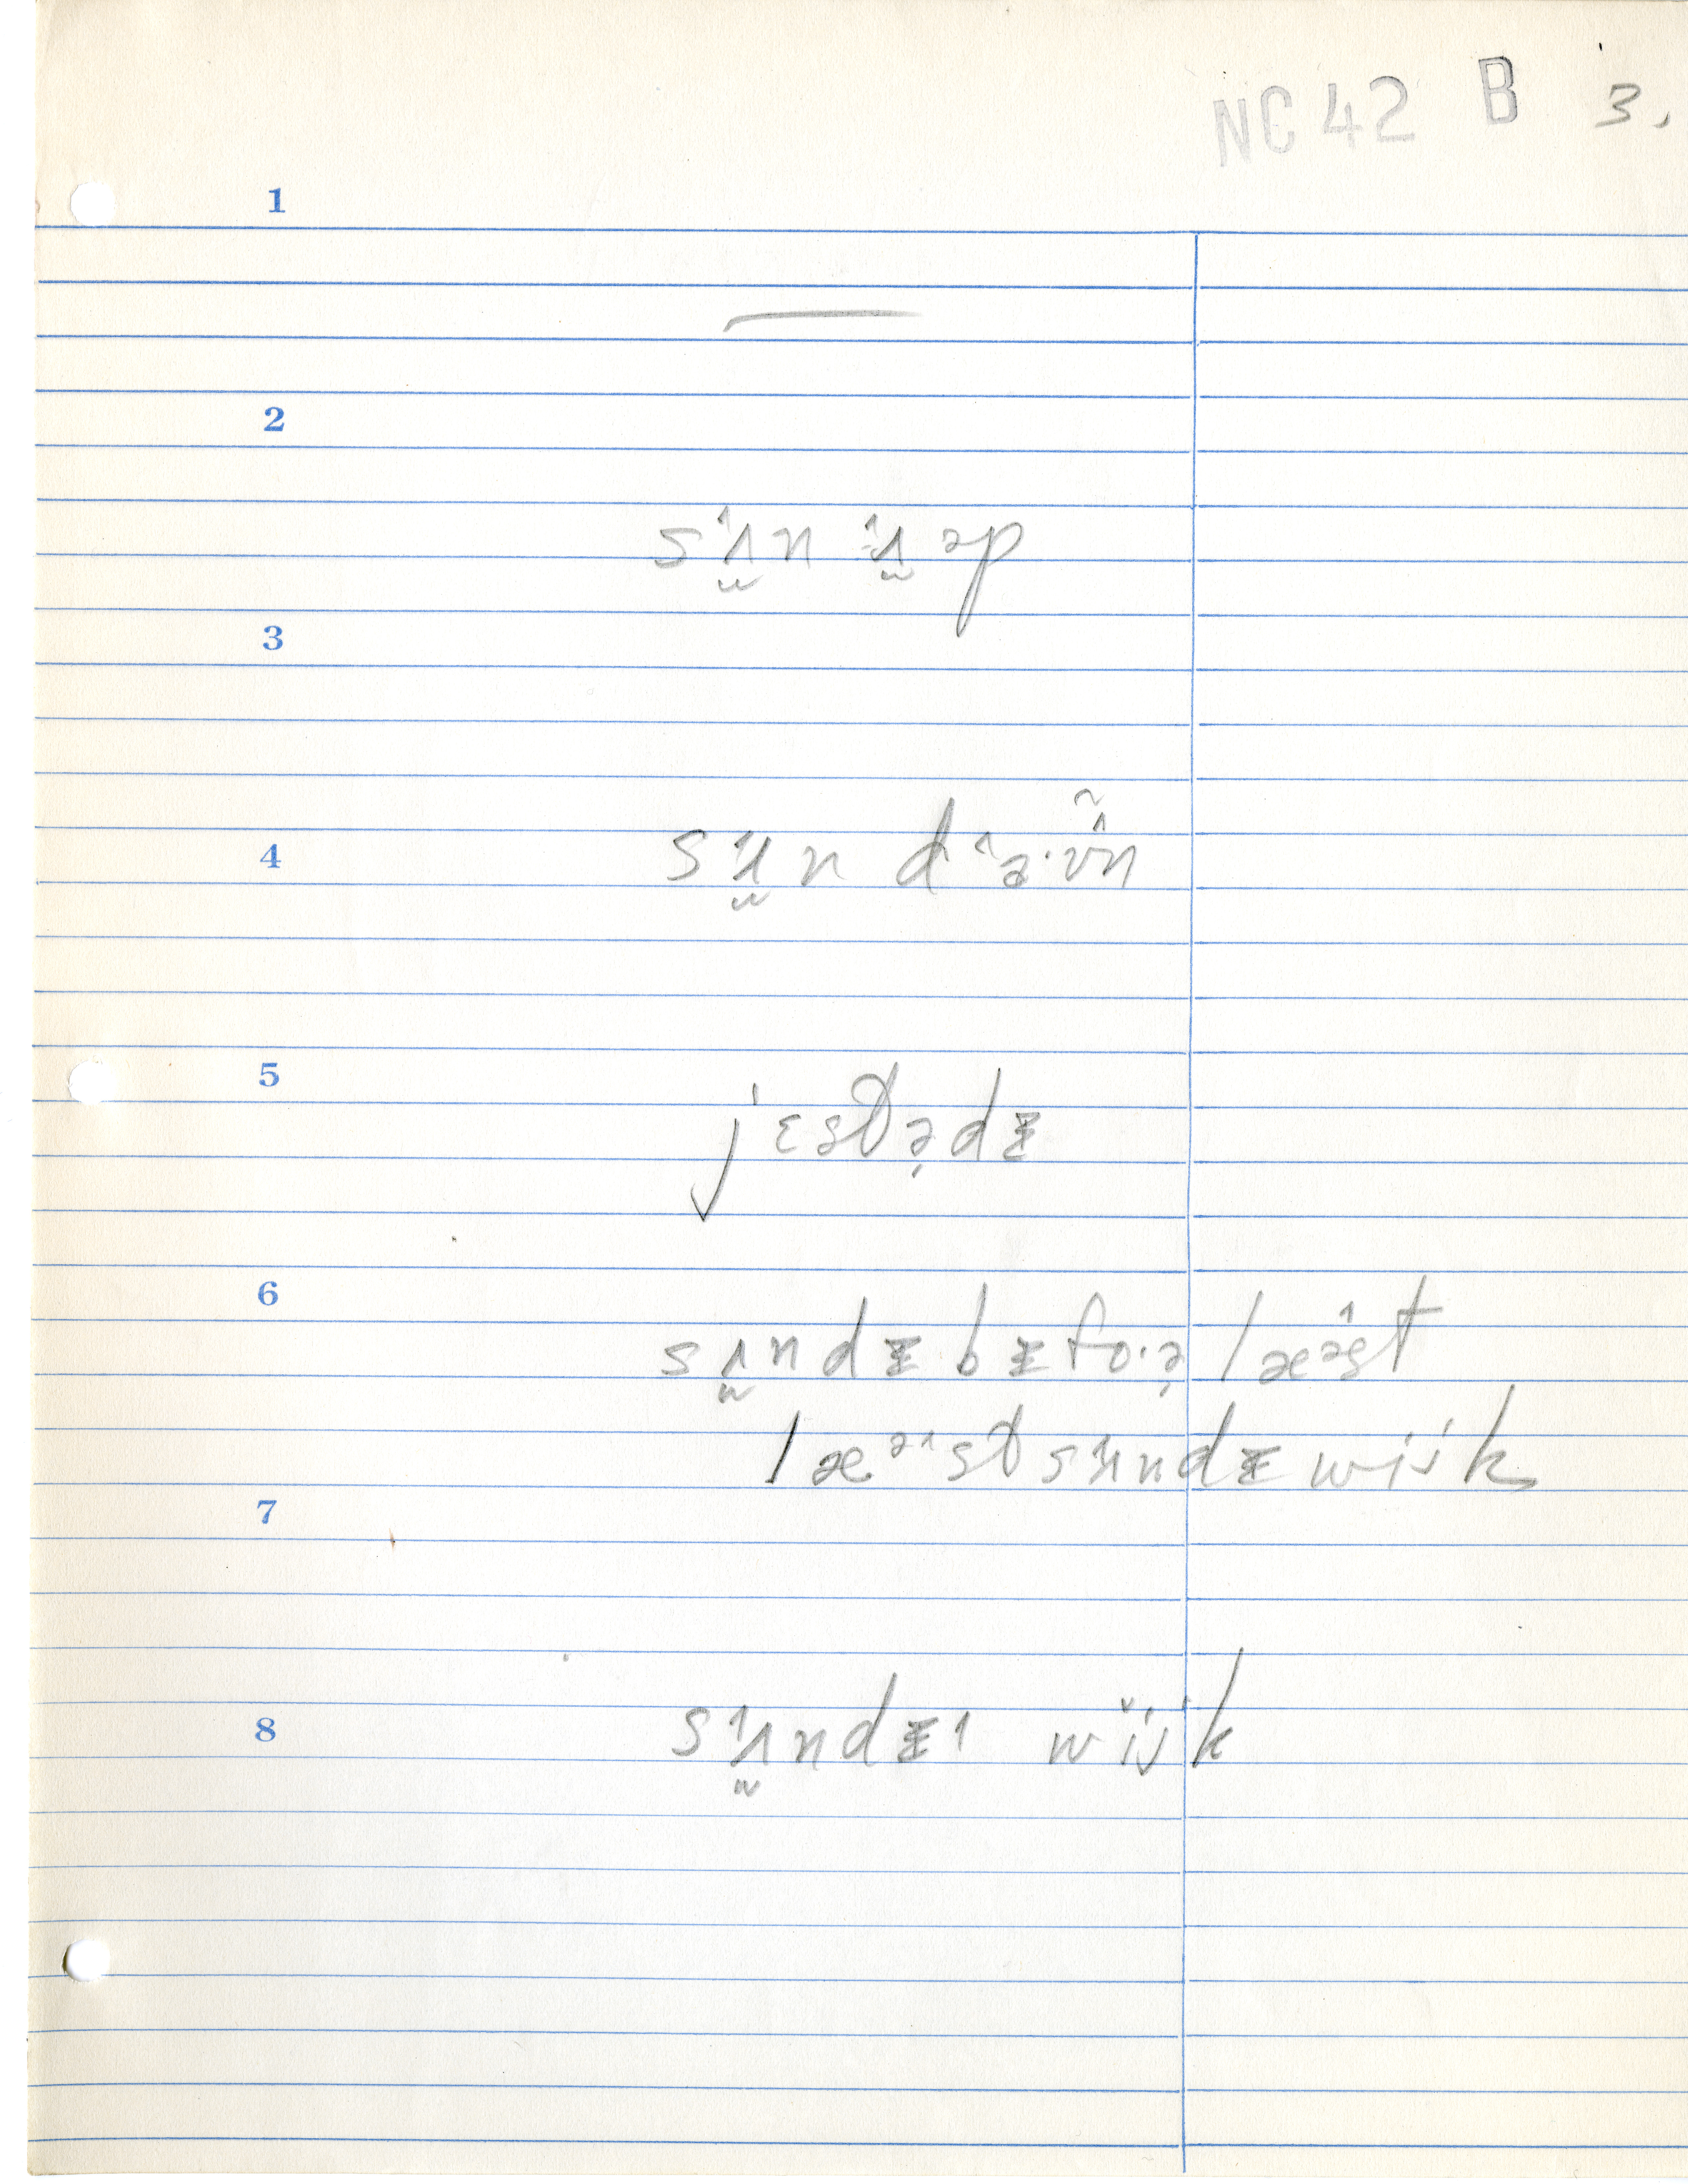 NC 42 B 3.
1
—
2
sʌ̬n ʌ̬əp
3
4
sʌ̬n dɐ·ʊ̃n
5
jɛst̬ɚdɪ
6
sʌndɪ bɪfo·ɚ læəst
læəst̬ sʌndɪ wijk
7
8
sʌndɪ wijk